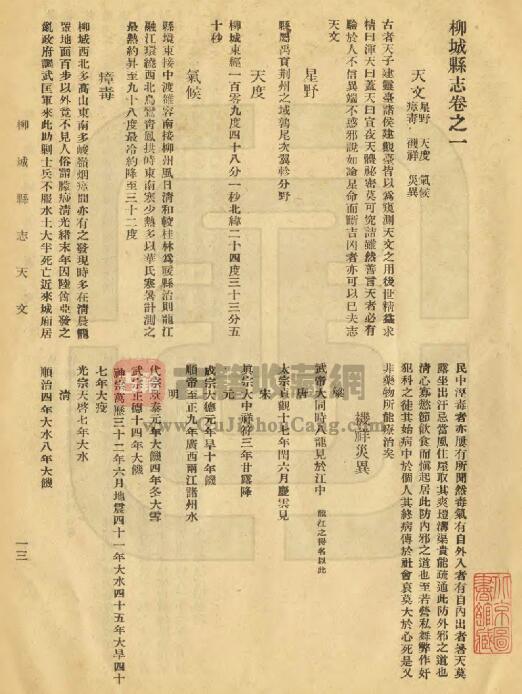 柳城縣志卷之一
天文 星野 天度 氣候
瘴毒 禨祥 災異
古者天子建靈臺諸侯建觀臺皆以為窺測天文之用後世精益求
精曰渾天曰蓋天曰宣夜天體祕密莫可究詰雖然善言天者必有
驗於人不信異端不惑邪說如論星命而斷吉凶者亦可以已夫志
天文
星野
縣屬禹貢荆州之域鶉尾次翼軫分野
天度
柳城東經一百零九度四十八分一秒北緯二十四度三十三分五
十秒
氣候
縣境東接中渡雒容南接柳州風日清和較桂林為暖縣治則龍江
融江環繞西北鳥鸞青鳳拱峙東南寒少熱多以華氏寒暑計測之
最熱約昇至九十八度最冷約降至三十二度
瘴毒
柳城西北多高山東南多峻嶺烟瘴間亦有之發現時多在清晨籠
罩地面百步以外竟不見人俗謂朦瘴清光緒末年因陸匪亞發之
亂政府調武匡軍來此助剿士兵不服水土大半死亡近來城廂居
柳城縣志 天文
民中瘴毒者亦屢有所聞然毒氣有自外入者有自內出者暑天莫
露坐出汗忌當風住屋取其爽塏溝渠貴能疏通此防外邪之道也
清心寡慾節飲食而愼起居此防內邪之道也至若營私舞弊作奸
犯科之徒其始病中於個人其終病傳於社會哀莫大於心死是又
非藥物所能療治矣
禨祥災異
梁
武帝大同時八龍見於江中 龍江之得名以此
唐
太宗貞觀十七年閏六月慶雲見
宋
眞宗大中祥符三年甘露降
元
成宗大德元年旱十年饑
順帝至正九年廣西兩江諸州水
明
代宗景泰元年大饑四年冬大雪
武宗正德十四年大饑
神宗萬歷三十二年六月地震四十一年大水四十五年大旱四十
七年大疫
光宗天啓七年大水
清
順治四年大水八年大饑
一三
古籍收藏網
www.GuJiShouCang.com
北京圖書館藏